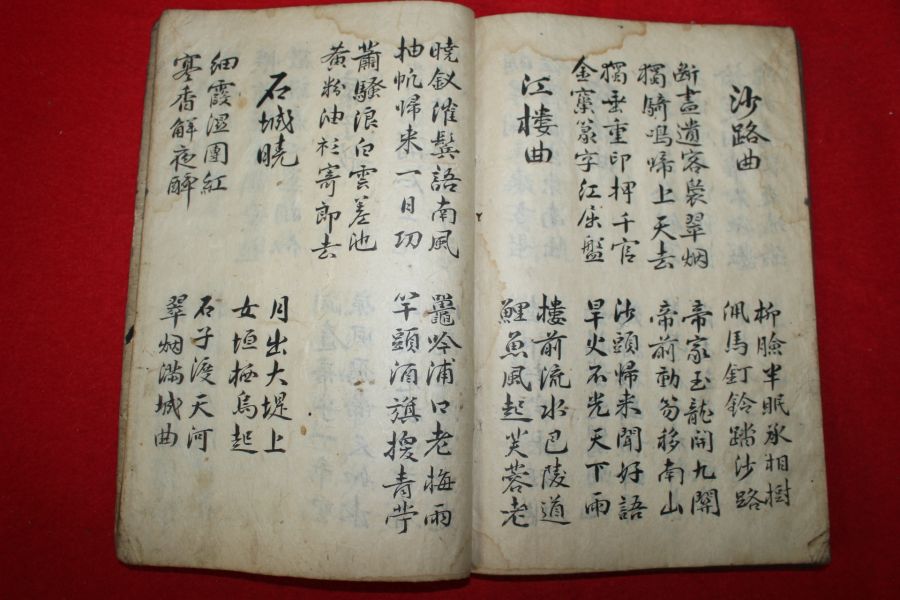 沙路曲
柳臉半眠承相樹
佩馬釘鈴踏沙路
斷畫遺客裊翠烟
獨騎鳴啼上天去
帝家玉龍開九關
帝前動笏移南山
獨垂重印押千官
金窠篆字紅屈盤
沙頭歸来聞好語
旱火不光天下雨
江樓曲
樓前流水巴陵道
鯉魚風起芙蓉老
曉釵催鬂語南風
抽帆歸来一日功
鼉吟浦口老梅雨
竿頭酒旗援青苧
蕭騷浪白雲差池
黃粉油衫寄郎去
石城曉
月出大堤上
女垣栖烏起
細霞濕團紅
寒香解夜醉
石子渡天河
翠烟滿城曲